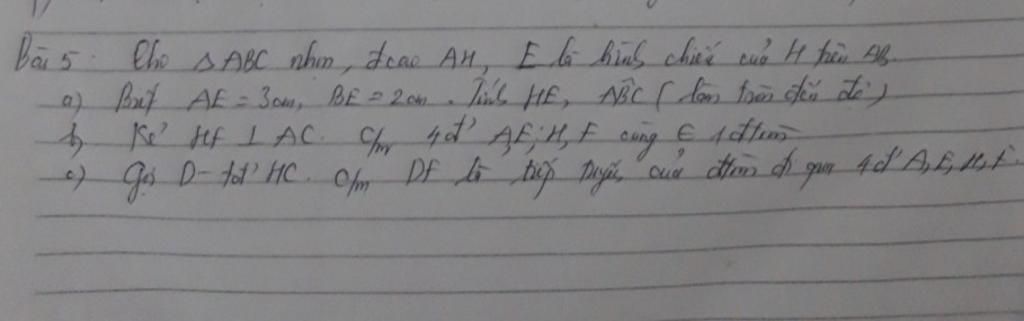 Bài 5. Cho ΔABC nhọn, đcao AH, E là hình chiếu của H trên AB.
a) Biết AE = 3cm, BE = 2cm. Tính HE, ABC (làm tròn đến độ)
b) Kẻ HF ⊥ AC. C/m 4đ' A, E, H, F cùng ∈ 1 đtròn
c) Gọi D - tđ' HC. C/m DF là tiếp tuyến của đtròn đi qua 4đ' A, E, H, F.